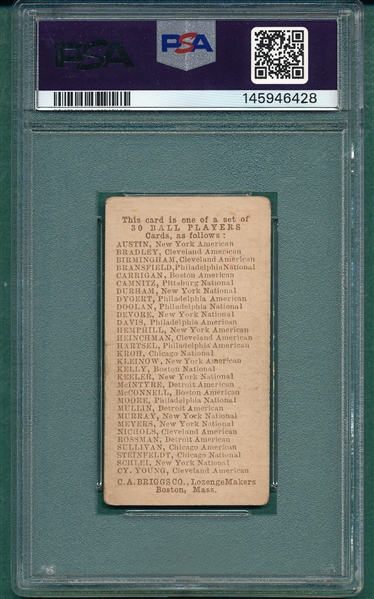 PSA
PSA
145946428
This card is one of a set of
30 BALL PLAYERS
Cards, as follows:
AUSTIN, New York American
BRADLEY, Cleveland American
BIRMINGHAM, Cleveland American
BRANSFIELD, Philadelphia National
CARRIGAN, Boston American
CAMNITZ, Pittsburg National
DURHAM, New York National
DYGERT, Philadelphia American
DOOLAN, Philadelphia National
DEVORE, New York National
DAVIS, Philadelphia American
HEMPHILL, New York American
HEINCHMAN, Cleveland American
HARTSEL, Philadelphia American
KROH, Chicago National
KLEINOW, New York American
KELLY, Boston National
KEELER, New York National
McINTYRE, Detroit American
McCONNELL, Boston American
MOORE, Philadelphia National
MULLIN, Detroit American
MURRAY, New York National
MEYERS, New York National
NICHOLS, Cleveland American
ROSSMAN, Detroit American
SULLIVAN, Chicago American
STEINFELDT, Chicago National
SCHLEI, New York National
CY. YOUNG, Cleveland American
C. A. BRIGGS CO., Lozenge Makers
Boston, Mass.